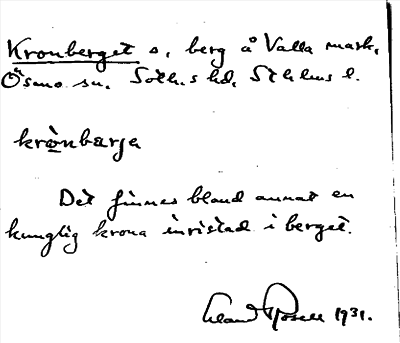 Kronberget s, berg å Valla mark,
Ösmo sn. Soth.s hd, Sthlms l.
krònbærja
Det finnes bland annat en
kunglig krona inristad i berget.
1931.